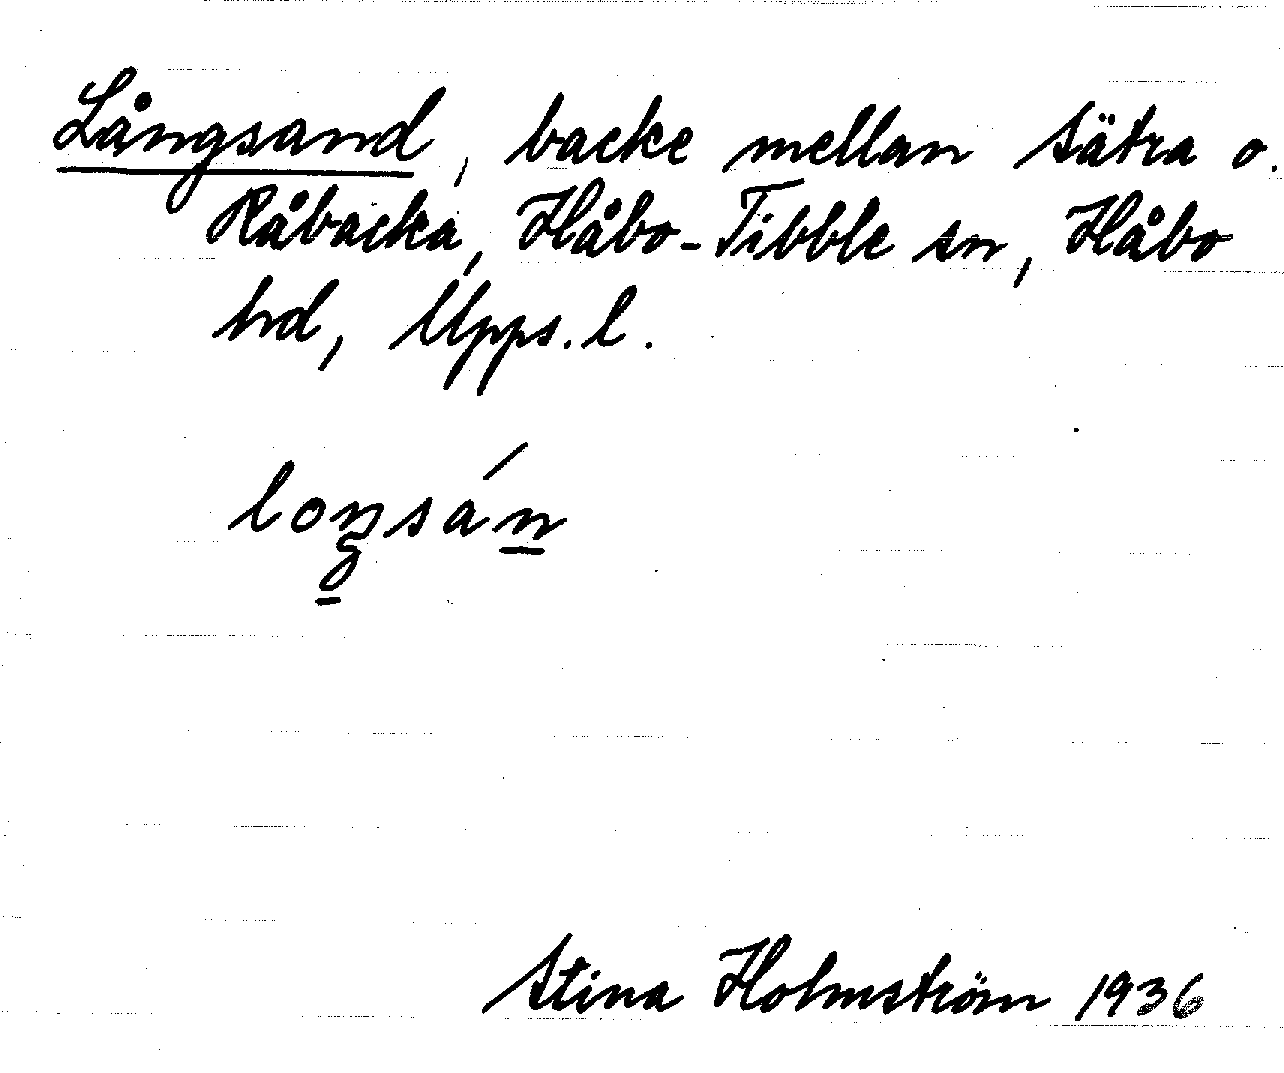 Långsand, backe mellan Sätra o.
Råbacka, Håbo-Tibble sn, Håbo
hd, Upps. l.
loŋsán
Stina Holmström 1936